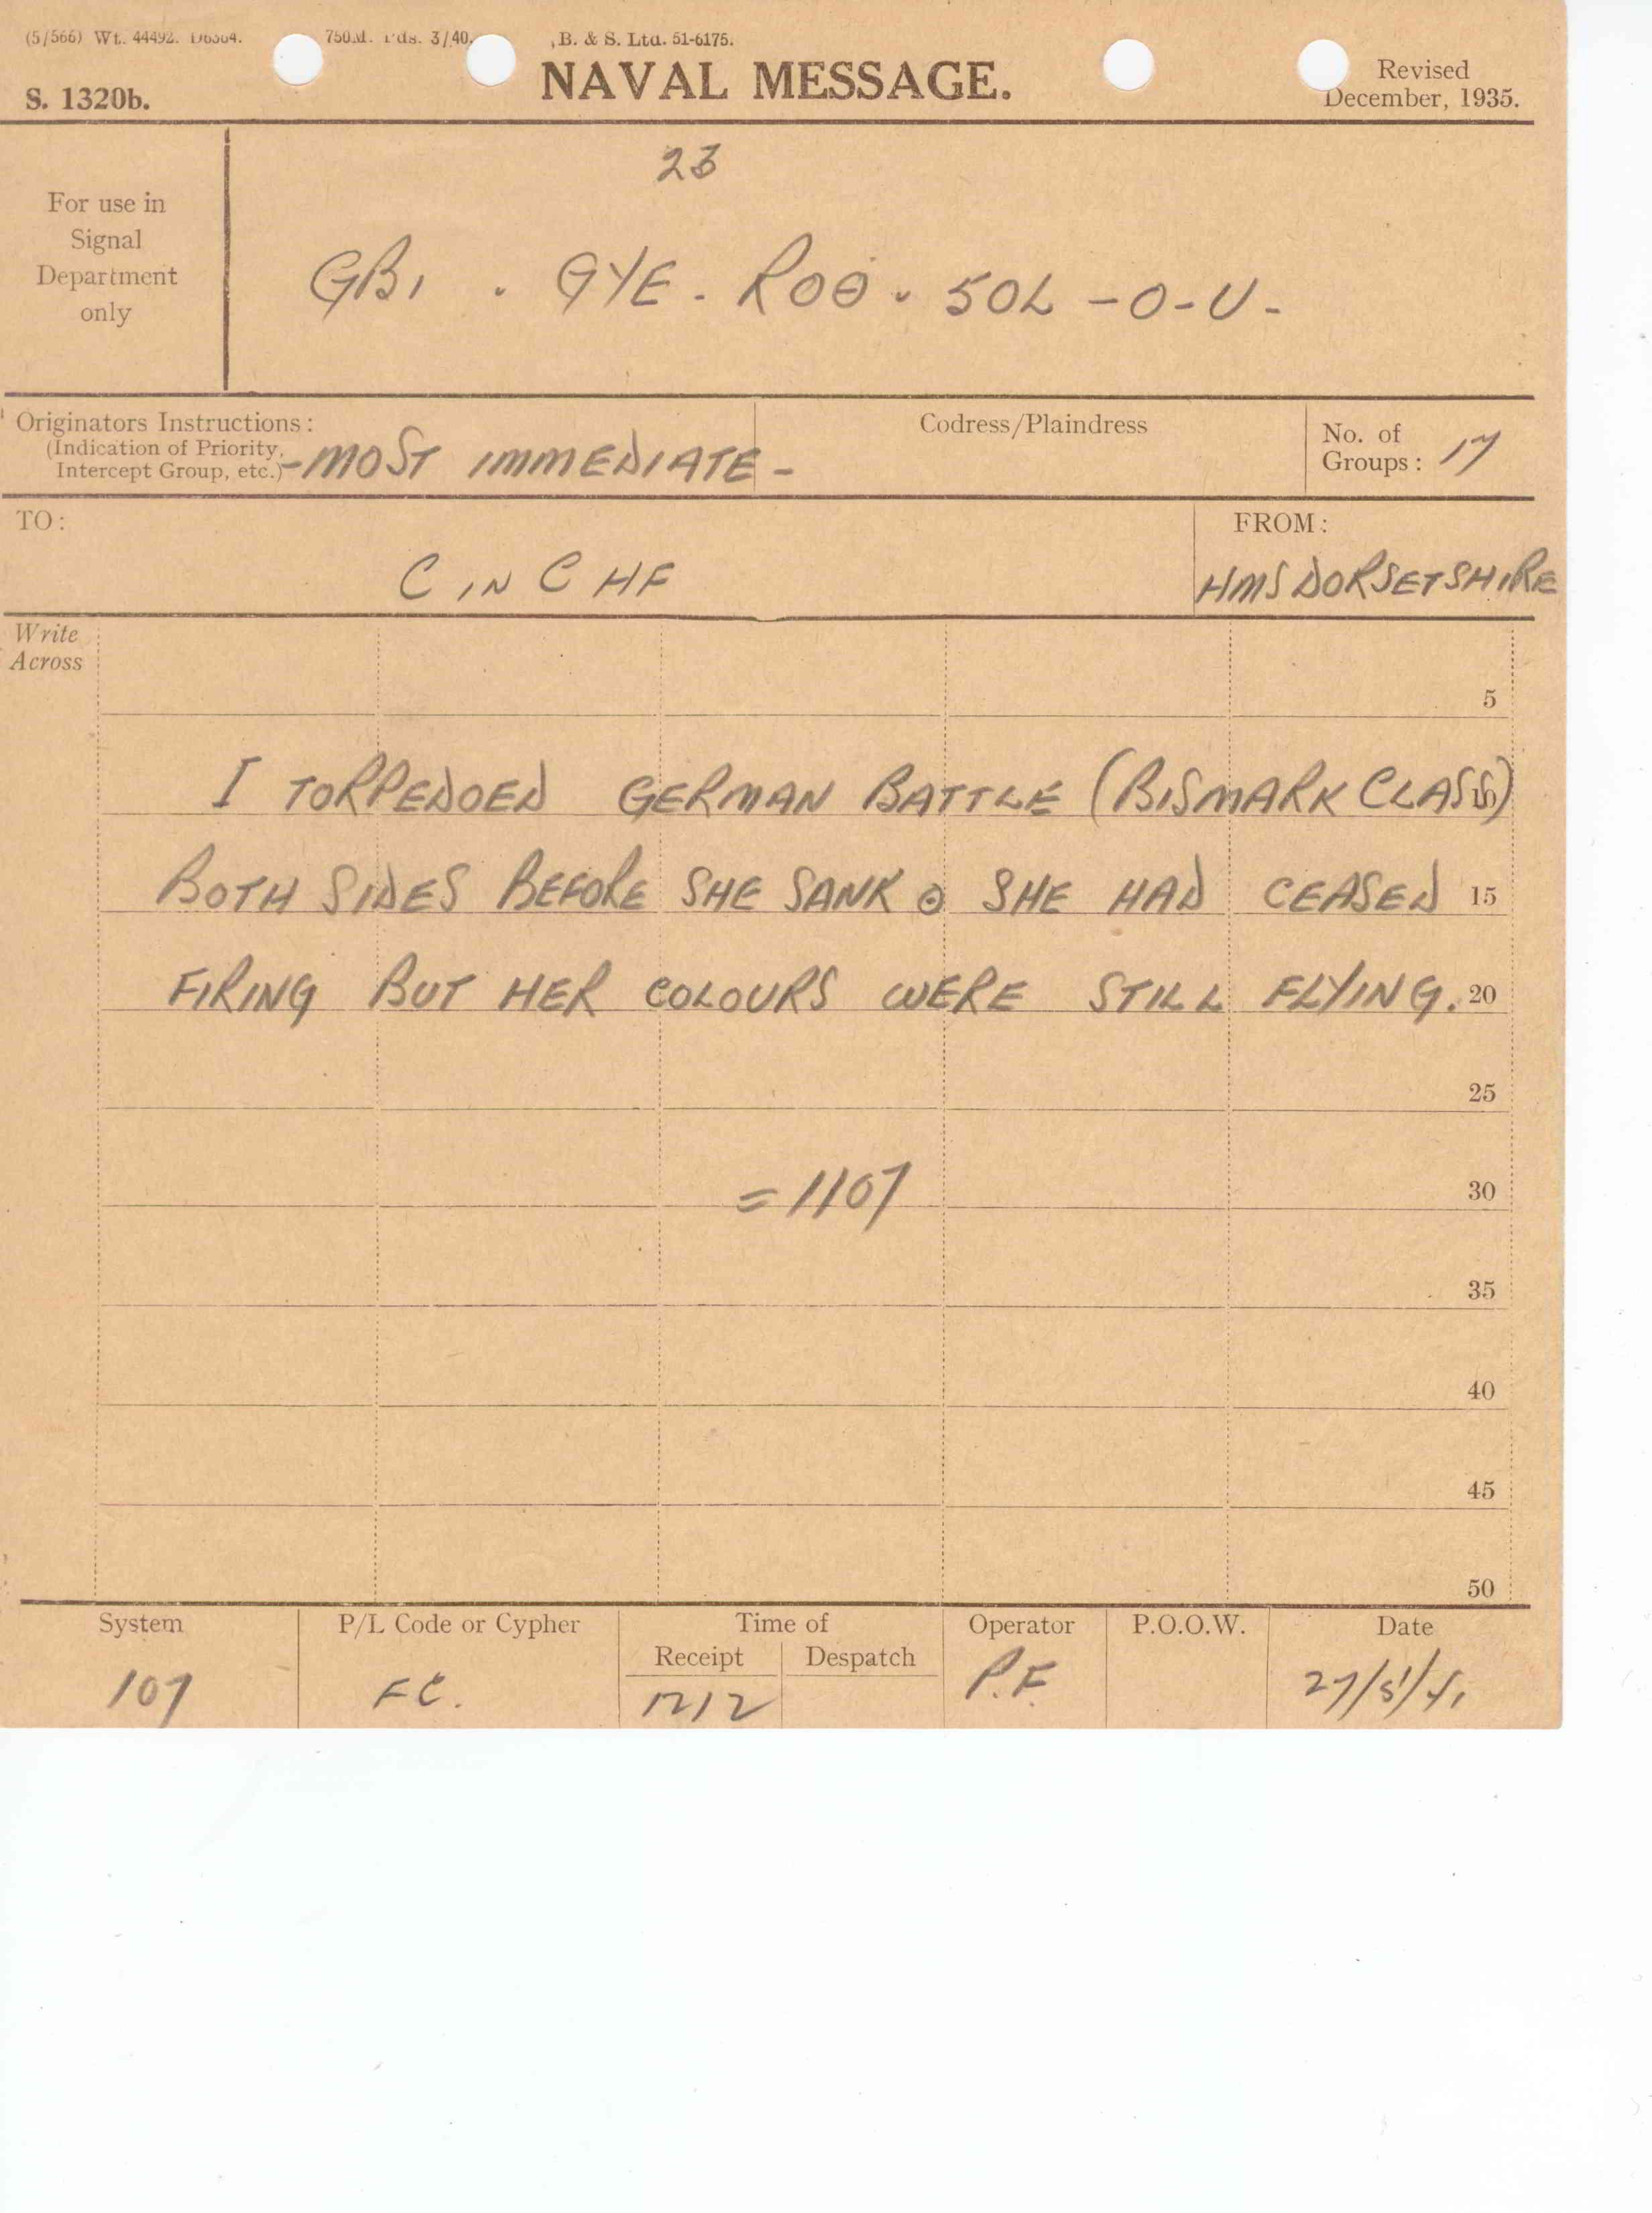 (5/566) Wt. 44492. D6364. 750M. Pds. 3/40. B. & S. Ltd. 51-6175.
S. 1320b.
NAVAL MESSAGE.
Revised
December, 1935.
For use in
Signal
Department
only
23
GB1 . GYE - R00 . 50L - O - U -
Originators Instructions:
(Indication of Priority,
Intercept Group, etc.)
- MOST IMMEDIATE -
Codress/Plaindress
No. of
Groups: 17
TO:
C IN C HF
FROM:
HMS DORSETSHIRE
Write
Across
5
I TORPEDOED GERMAN BATTLE (BISMARK CLASS)
BOTH SIDES BEFORE SHE SANK ⊙ SHE HAD CEASED 15
FIRING BUT HER COLOURS WERE STILL FLYING. 20
25
= 1107
30
35
40
45
50
System
107
P/L Code or Cypher
FC.
Time of
Receipt
1212
Despatch
Operator
P.F.
P.O.O.W.
Date
27/5/41